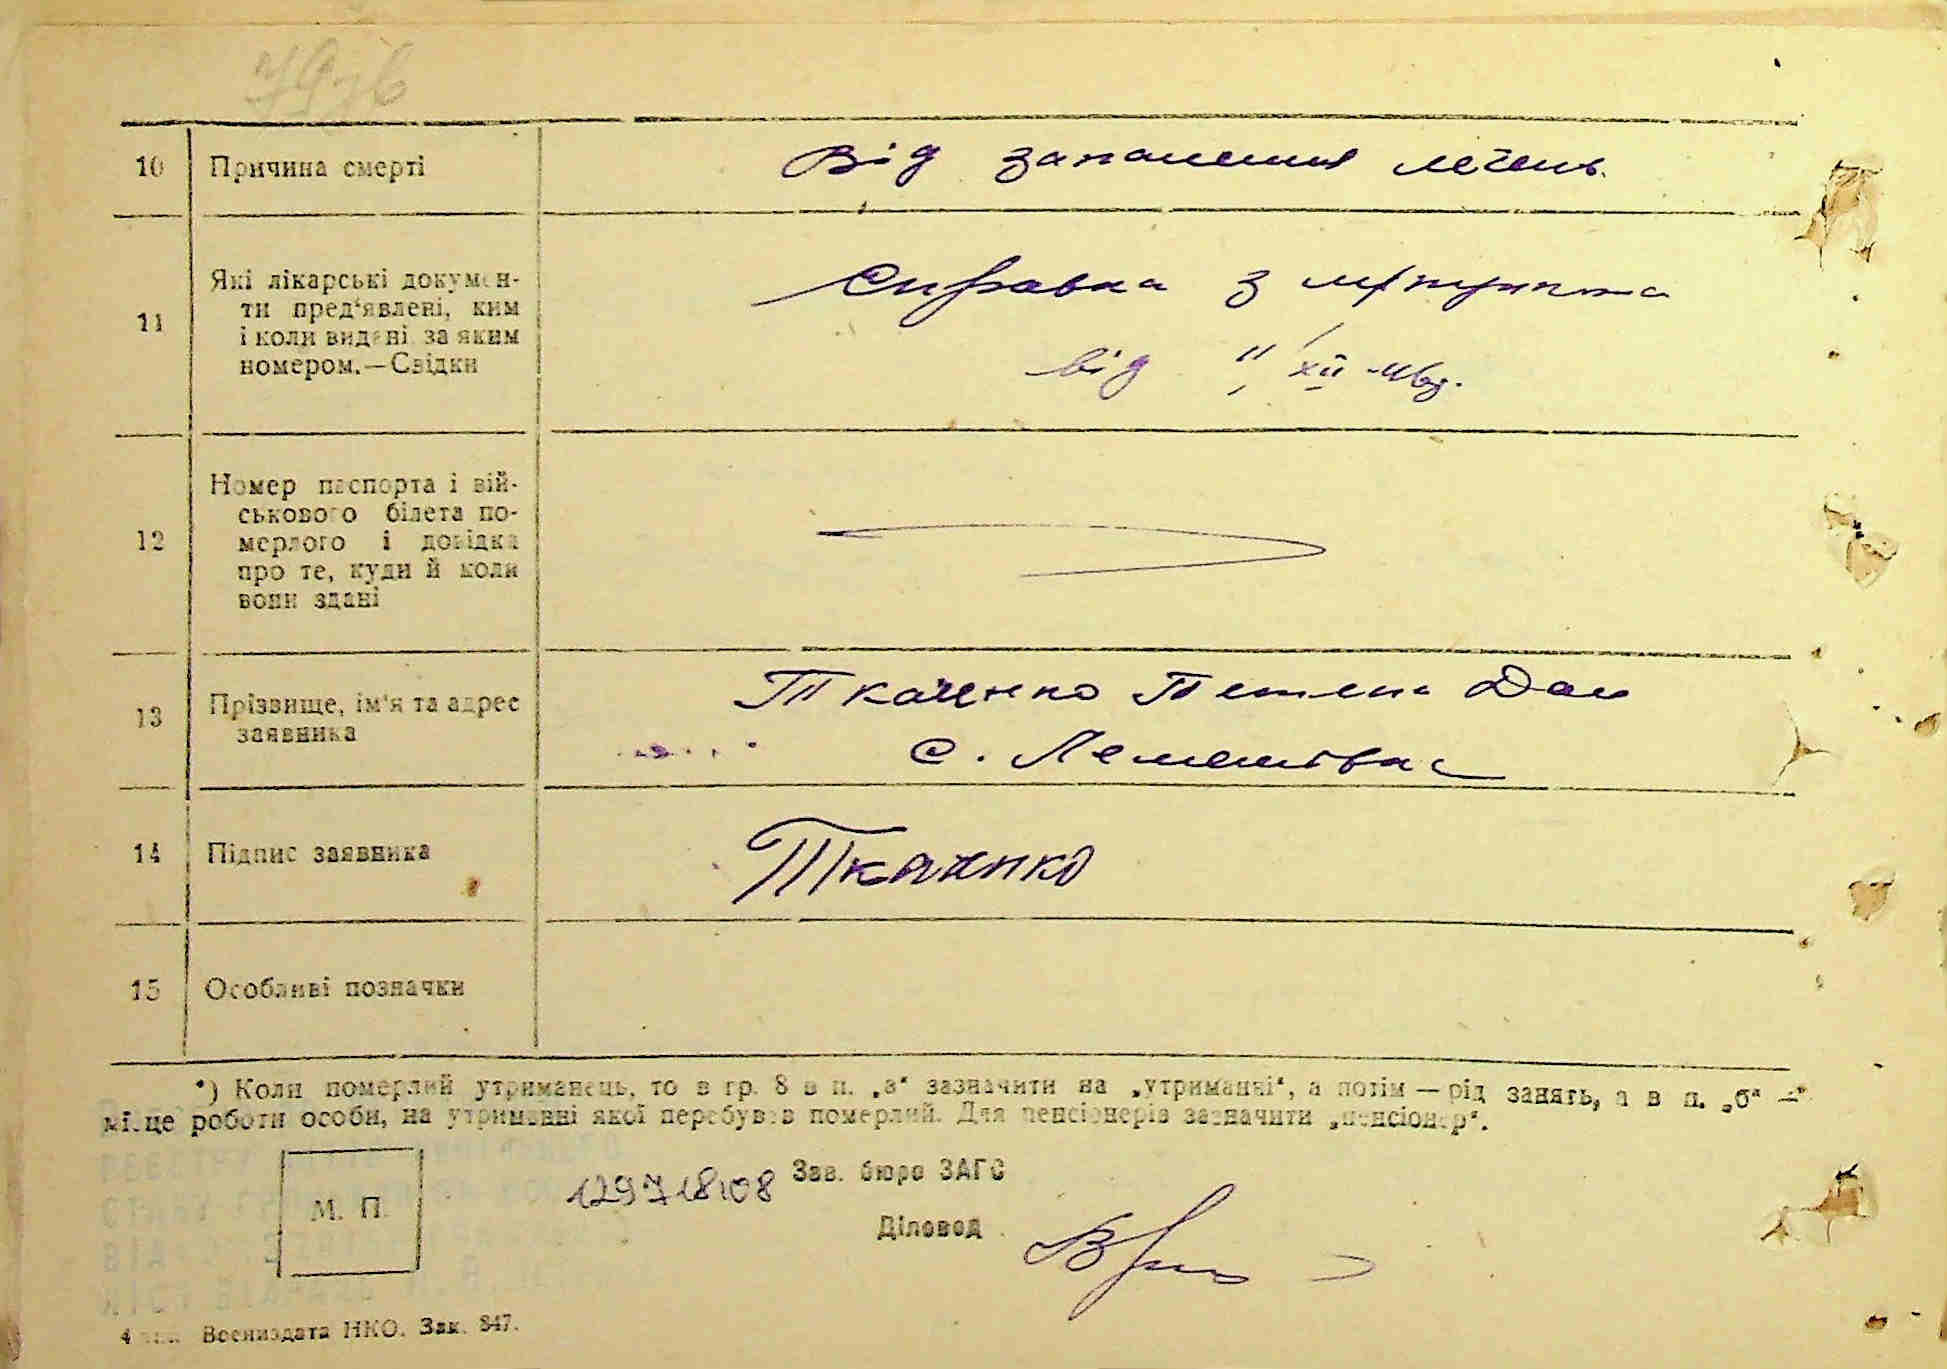 10 Причина смерті
Від запалення легень.
11 Які лікарські докумен-
ти пред'явлені, ким
і коли видані за яким
номером.—Свідки
Справка з медпункта
від 11/XII-46р.
12 Номер паспорта і вій-
ськового білета по-
мерлого і довідка
про те, куди й коли
вони здані
13 Прізвище, ім'я та адрес
заявника
Ткаченко Тетяна Дан
с. Лемешівка
14 Підпис заявника
Ткаченко
15 Особливі позначки
*) Коли померлий утриманець, то в гр. 8 в п. „а“ зазначити на „утриманні“, а потім — рід занять, а в п. „б“ —
місце роботи особи, на утриманні якої перебував померлий. Для пенсіонерів зазначити „пенсіонер“.
М. П.
129718108
Зав. бюро ЗАГС
Діловод
4 тип. Воениздата НКО. Зак. 847.